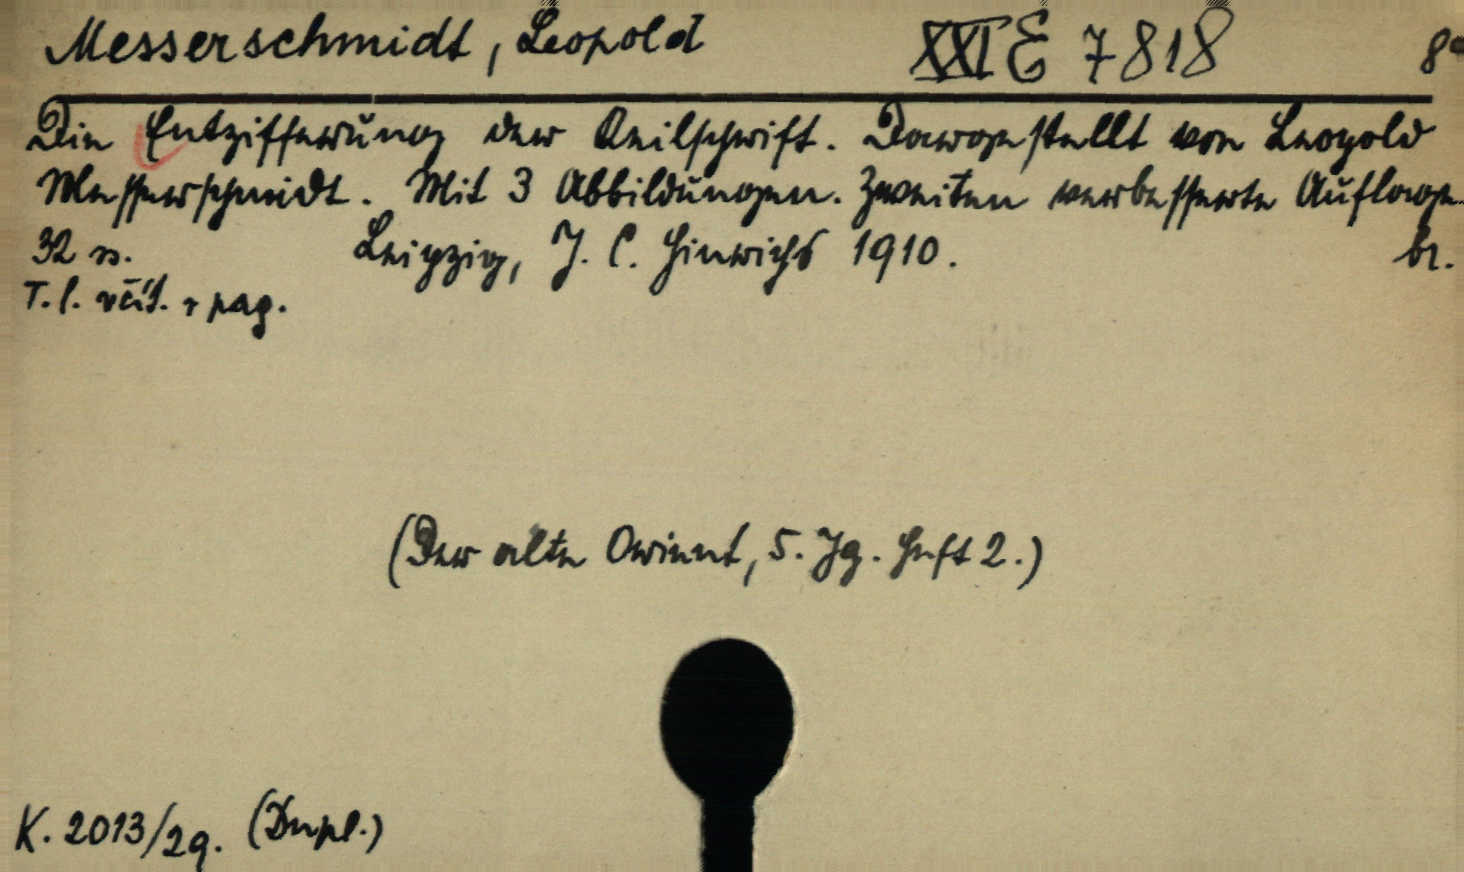 Messerschmidt, Leopold XXI E 7818 8°
Die Entzifferung der Keilschrift. Dargestellt von Leopold
Messerschmidt. Mit 3 Abbildungen. Zweite verbesserte Auflage.
32 s. Leipzig, J. C. Hinrichs 1910. br.
T. l. včít. v pag.
(Der alte Orient, 5. Jg. Heft 2.)
K. 2013/29. (Dupl.)